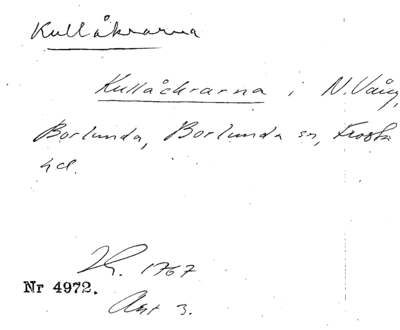 Kullåkrarna
Kullåckrarna i N.Vång,
Borlunda, Borlunda sn, Frosta
hd.
1767
Nr 4972.
Akt 3.